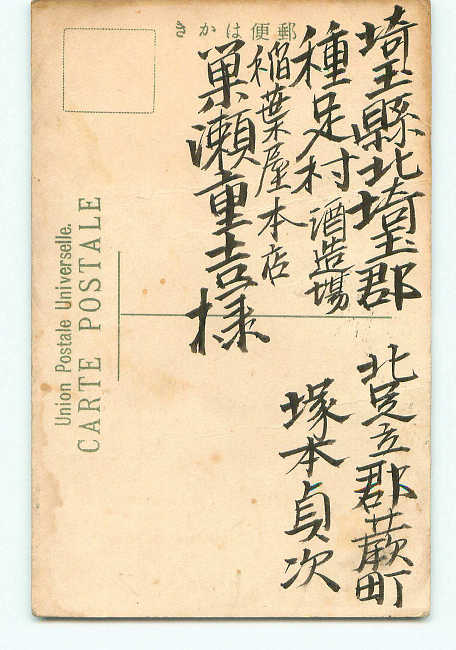 郵便はかき
埼玉縣北埼玉郡
種足村 酒造場
稲葉屋本店
巣瀬重吉様
北足立郡蕨町
塚本貞次
Union Postale Universelle.
CARTE POSTALE